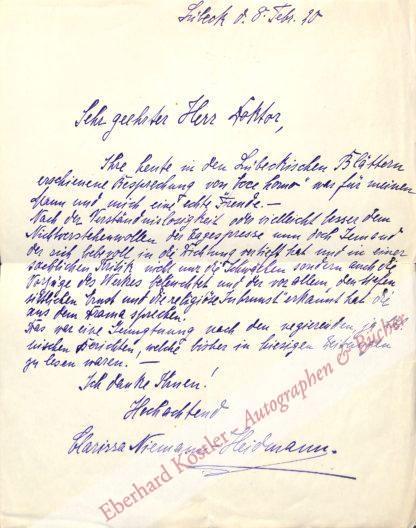 Lübeck d. 8. Febr. 20
Sehr geehrter Herr Doktor,
Ihre heute in den Lübeckischen Blättern
erschienene Besprechung von "ecce homo" war für meinen
Mann und mich eine echte Freude. —
Nach der Verständnislosigkeit oder vielleicht besser dem
Nichtverstehenwollen der Tagespresse nun doch Jemand
der sich liebevoll in die Dichtung vertieft hat und in einer
sachlichen Kritik nicht nur die Schwächen sondern auch die
Vorzüge des Werkes beleuchtet und der vor allem, den tiefen
sittlichen Ernst und die religiöse Inbrunst erkannt hat die
aus dem Drama sprechen.
Das war eine Genugtuung nach den negierenden, ja
Berichten, welche bisher in hiesigen Zeitungen
zu lesen waren. —
Ich danke Ihnen!
Hochachtend
Clarissa Niemann-Heidmann.
Eberhard Köstler - Autographen & Bücher